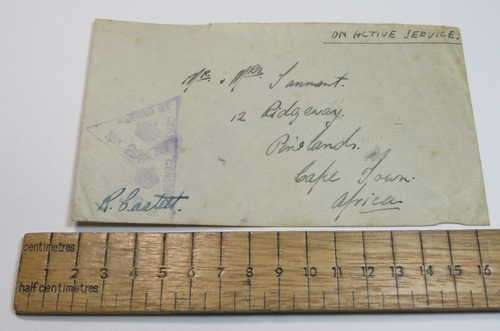 ON ACTIVE SERVICE.
Mr. & Mrs Tennant.
12 Ridgeway.
Pinelands.
Cape Town.
Africa
centimetres
1 2 3 4 5 6 7 8 9 10 11 12 13 14 15 16
half centimetres